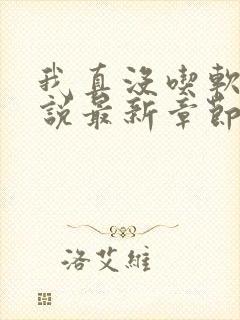 我真没喫軟
說最新章節
洛艾維